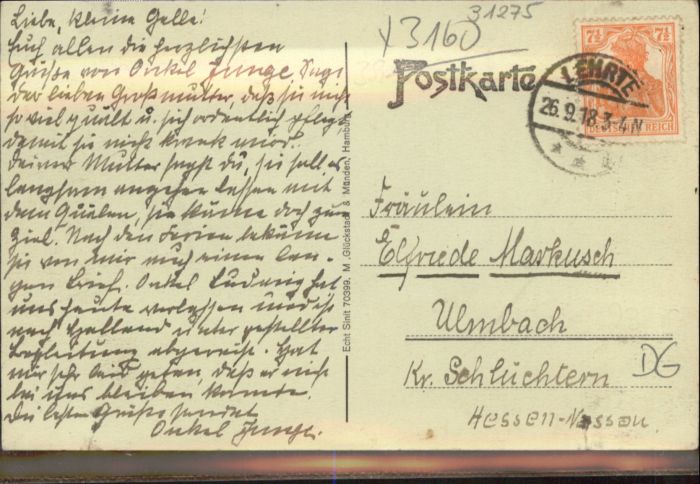 Liebe, kleine Gelle!
Euch allen die herzlichsten
Grüße von Onkel Junge. Sage
der lieben Großmutter, daß sie nicht
so viel quält u. sich ordentlich pflegt
damit sie nicht krank wird.
Deiner Mutter sagst du, sie soll es
langsam angehen lassen mit
dem Quälen, sie käme doch zum
Ziel. Nach den Ferien bekäme
sie von mir auch einen lan-
gen Brief. Onkel Ludwig hat
uns heute verlassen und ist
nach Holland unter gestellter
Begleitung abgereist. Hat
mir sehr leid getan, daß er nicht
bei uns bleiben konnte.
Die besten Grüße sendet
Onkel Junge.
Echt Sinit 70399. M. Glückstadt & Münden, Hamburg
31275
y3160
Postkarte
LEHRTE
26.9.18.3-4N
7½ 7½
DEUTSCHES REICH
Fräulein
Elfriede Markusch
Ulmbach
Kr. Schlüchtern
DG
Hessen-Nassau